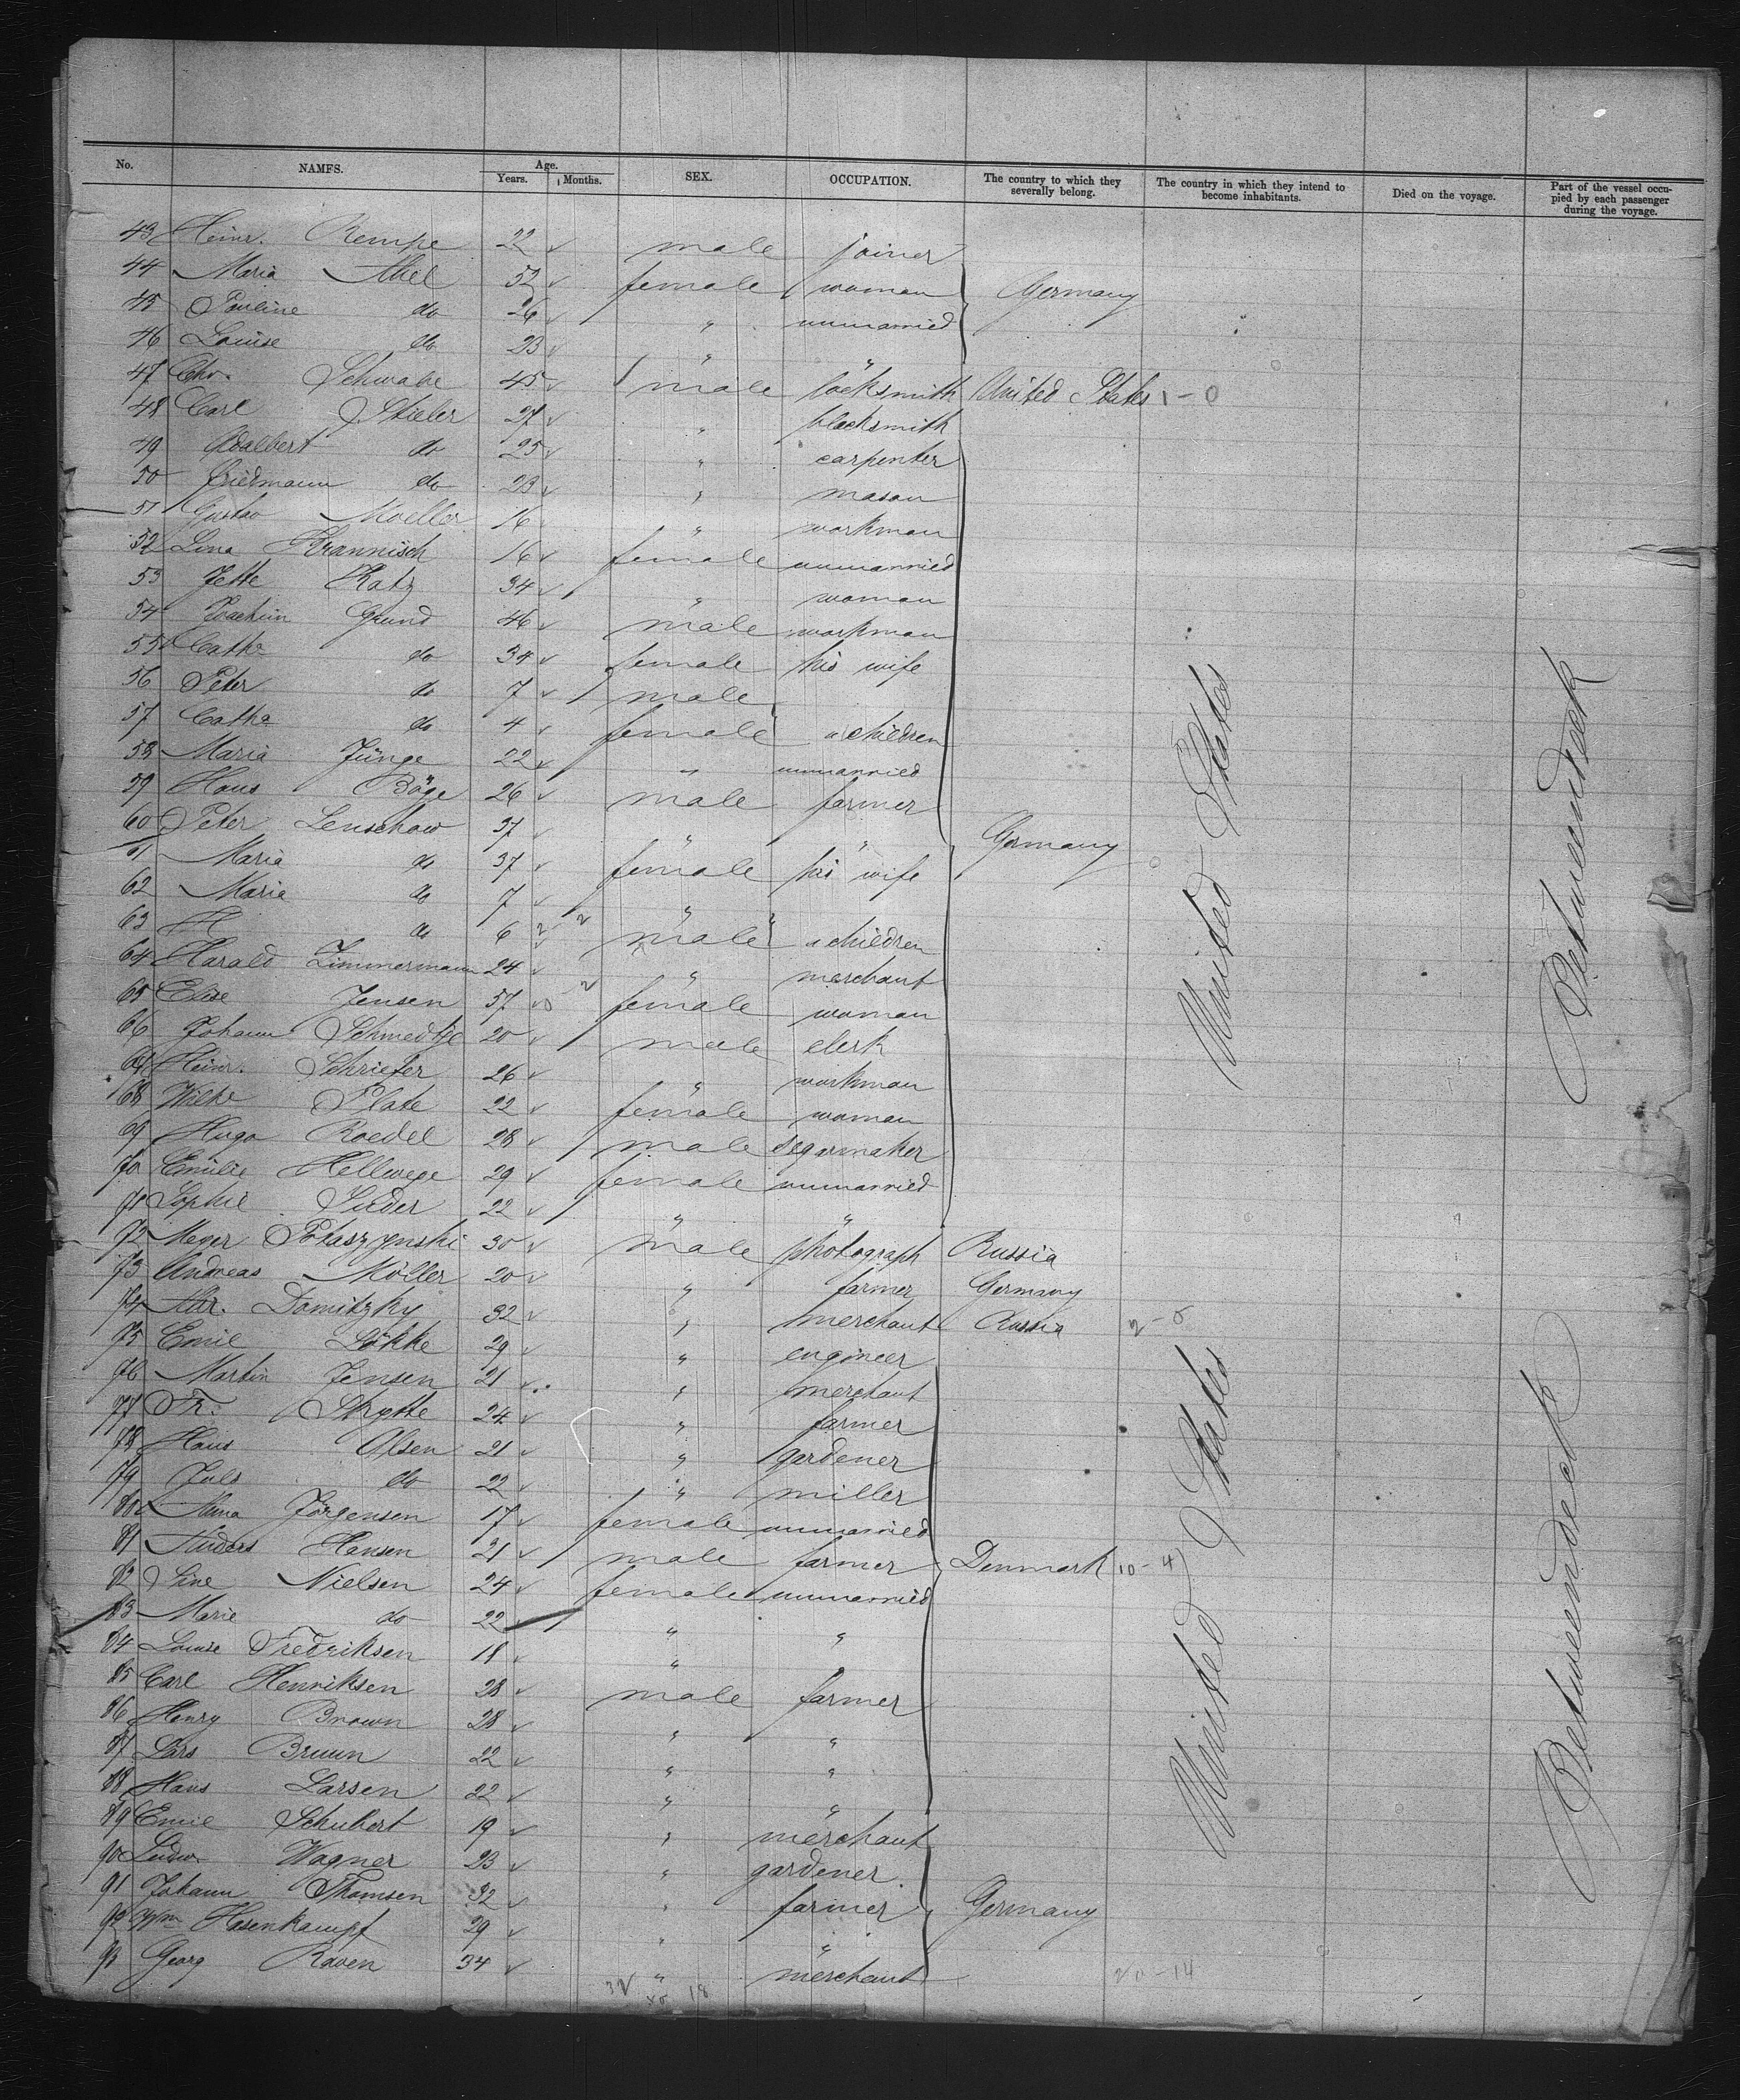 No. NAMES. Age. Years. Months. SEX. OCCUPATION. The country to which they severally belong. The country in which they intend to become inhabitants. Died on the voyage. Part of the vessel occupied by each passenger during the voyage.
43 Heinr. Rempe 22 male joiner
44 Maria Abel 52 female woman Germany
45 Pauline do 26 " unmarried
46 Louise do 23 " "
47 Chr. Schwabe 45 male locksmith United States 1-0
48 Carl Stieler 27 " blacksmith
49 Adalbert do 25 " carpenter
50 Friedmann do 23 " mason
51 Gustav Moeller 16 " workman
52 Lina Krannisch 16 female unmarried
53 Jette Katz 34 " woman
54 Joachim Grund 46 male workman
55 Catha do 34 female his wife
56 Peter do 7 male
57 Catha do 4 female children
58 Maria Jünge 22 " unmarried
59 Hans Böge 26 male farmer
60 Peter Lenschow 37 " " Germany
61 Maria do 37 female his wife
62 Marie do 7 " "
63 H do 6 male children
64 Harald Zimmermann 24 " merchant
65 Elise Jensen 57 female woman
66 Johann Schmedtje 20 male clerk
67 Heinr. Schriefer 26 " workman
68 Wilhe Plate 22 female woman
69 Hugo Roedel 28 male segarmaker
70 Emilie Hellwege 29 female unmarried
71 Sophie Sieder 22 " "
72 Meyer Potaszynski 30 male photograph Russia
73 Andreas Möller 20 " farmer Germany
74 Abr. Domitzky 32 " merchant Russia 2-0
75 Emil Lökke 29 " engineer
76 Martin Jensen 21 " merchant
77 Fr. Skytte 24 " farmer
78 Hans Olsen 21 " gardener
79 Juls do 22 " miller
80 Anna Jörgensen 17 female unmarried
81 Anders Hansen 21 male farmer Denmark 10-4
82 Sine Nielsen 24 female unmarried
83 Marie do 22 " "
84 Louise Fredriksen 18 "
85 Carl Henriksen 28 male farmer
86 Henry Brown 28 " "
87 Lars Bruun 22 " "
88 Hans Larsen 22 " "
89 Emil Schubert 19 " merchant
90 Ludw. Wagner 23 " gardener
91 Johann Thomsen 32 " farmer Germany
92 Wm Hasenkampf 29 " "
93 Georg Raven 34 " merchant
20-14
18
United States
United States
Betweendeck
Betweendeck